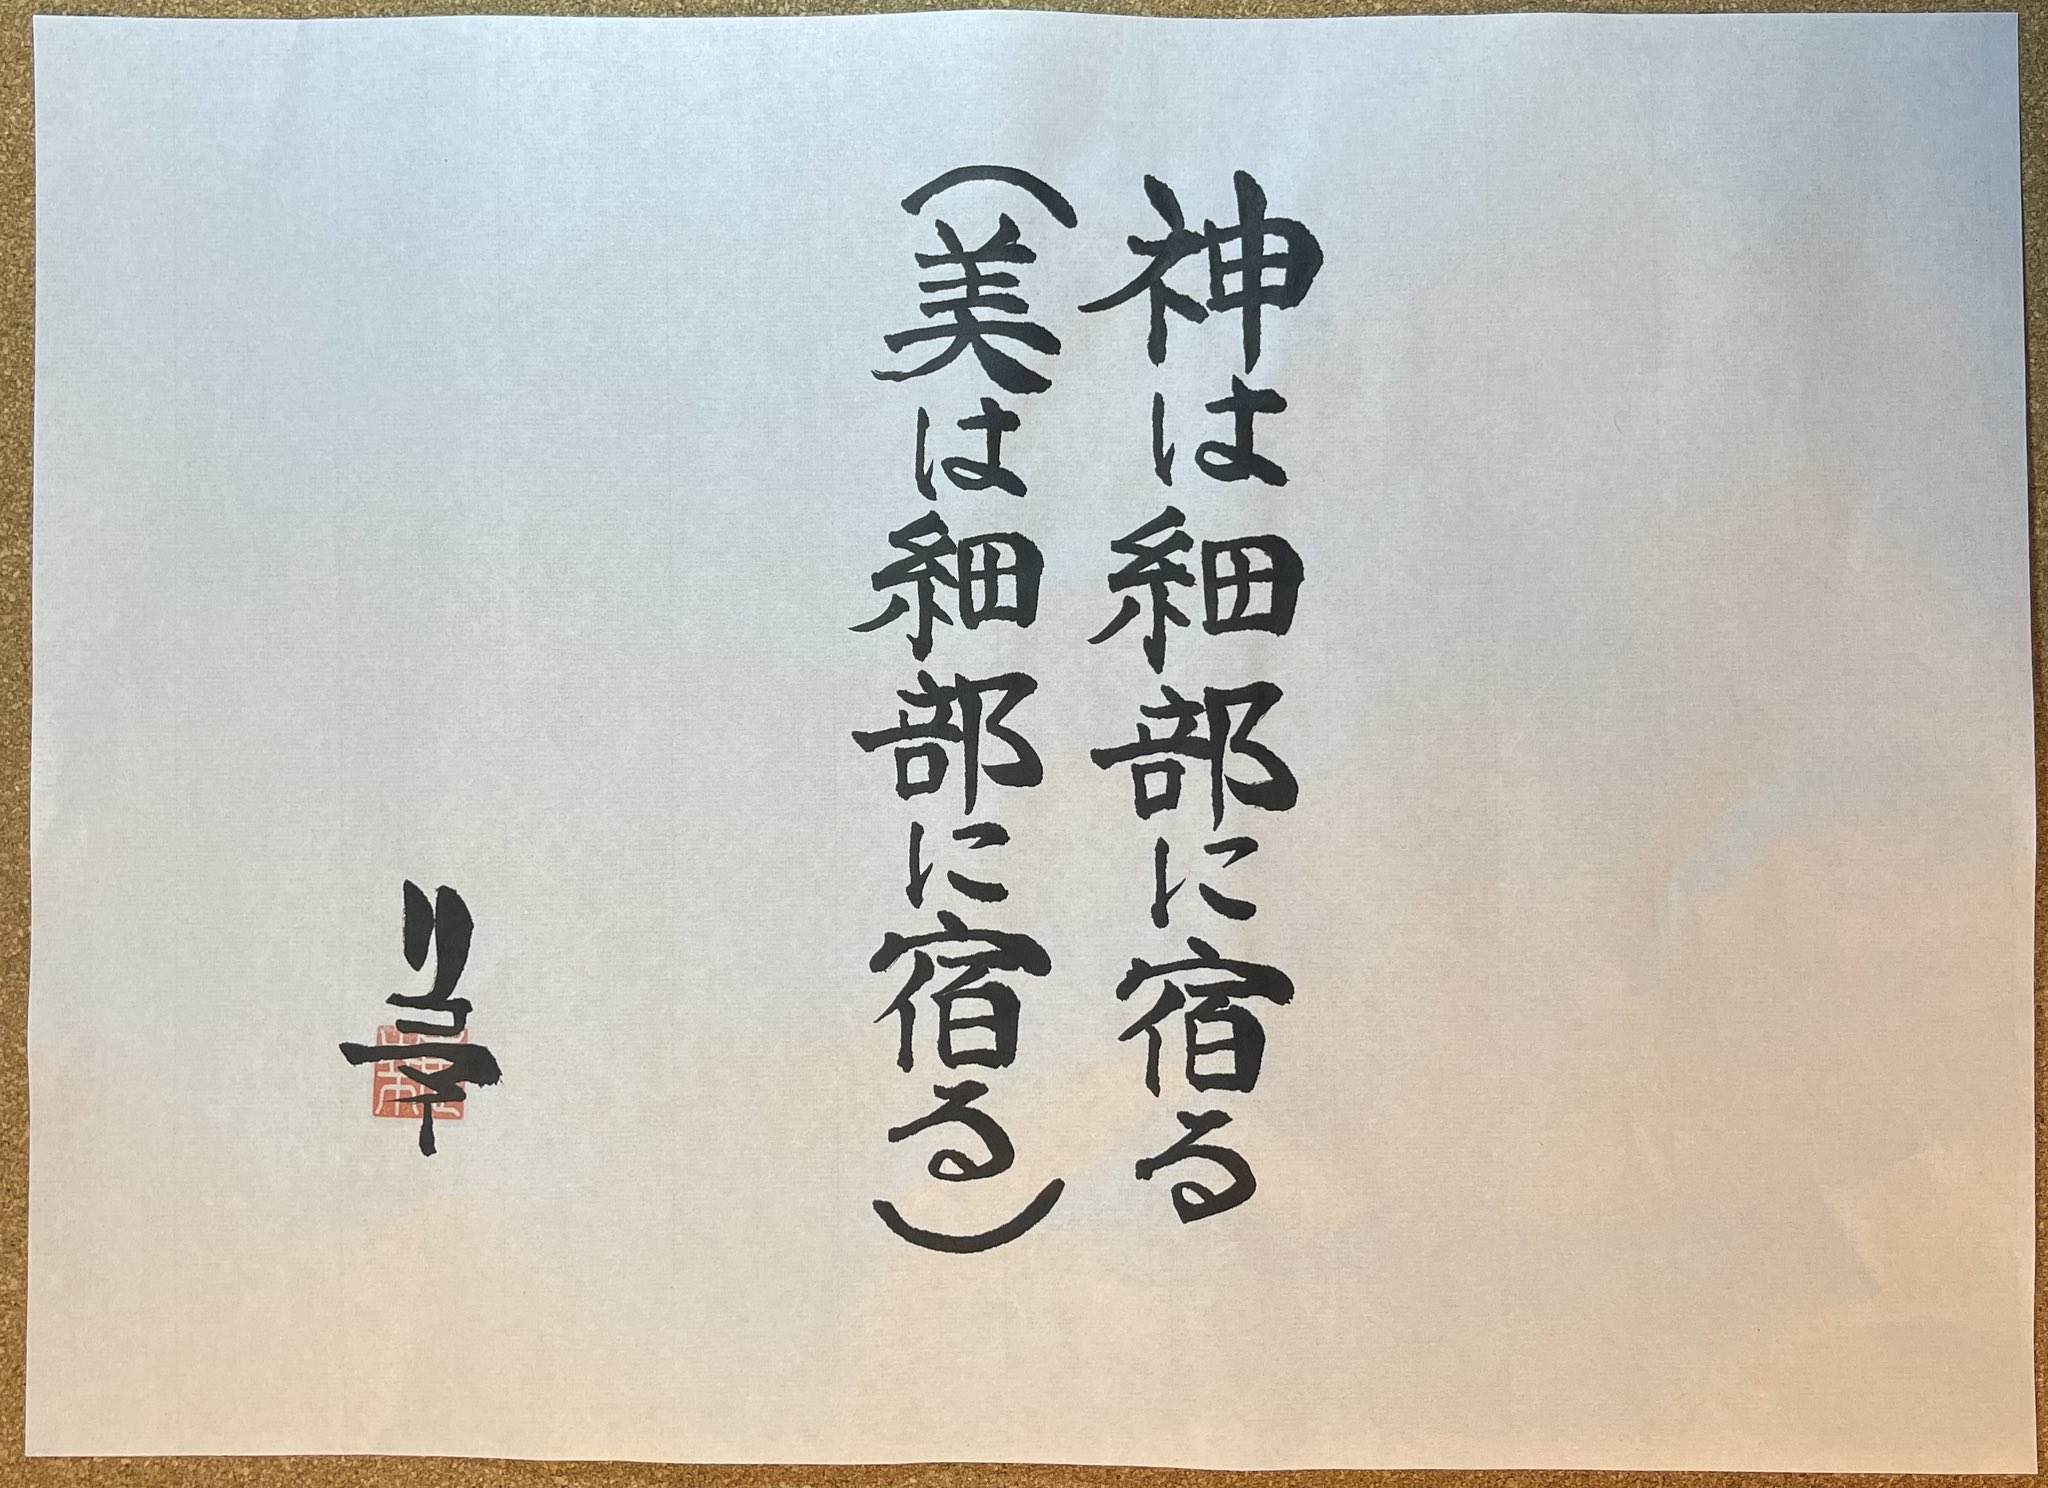 神は細部に宿る
（美は細部に宿る）